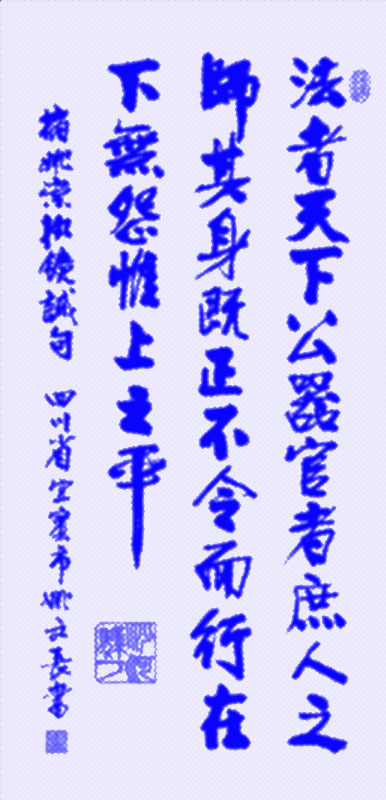 法者天下公器官者庶人之
師其身既正不令而行在
下無怨惟上之平
摘姚崇執鏡誡句 四川省宜賓市姚立長書